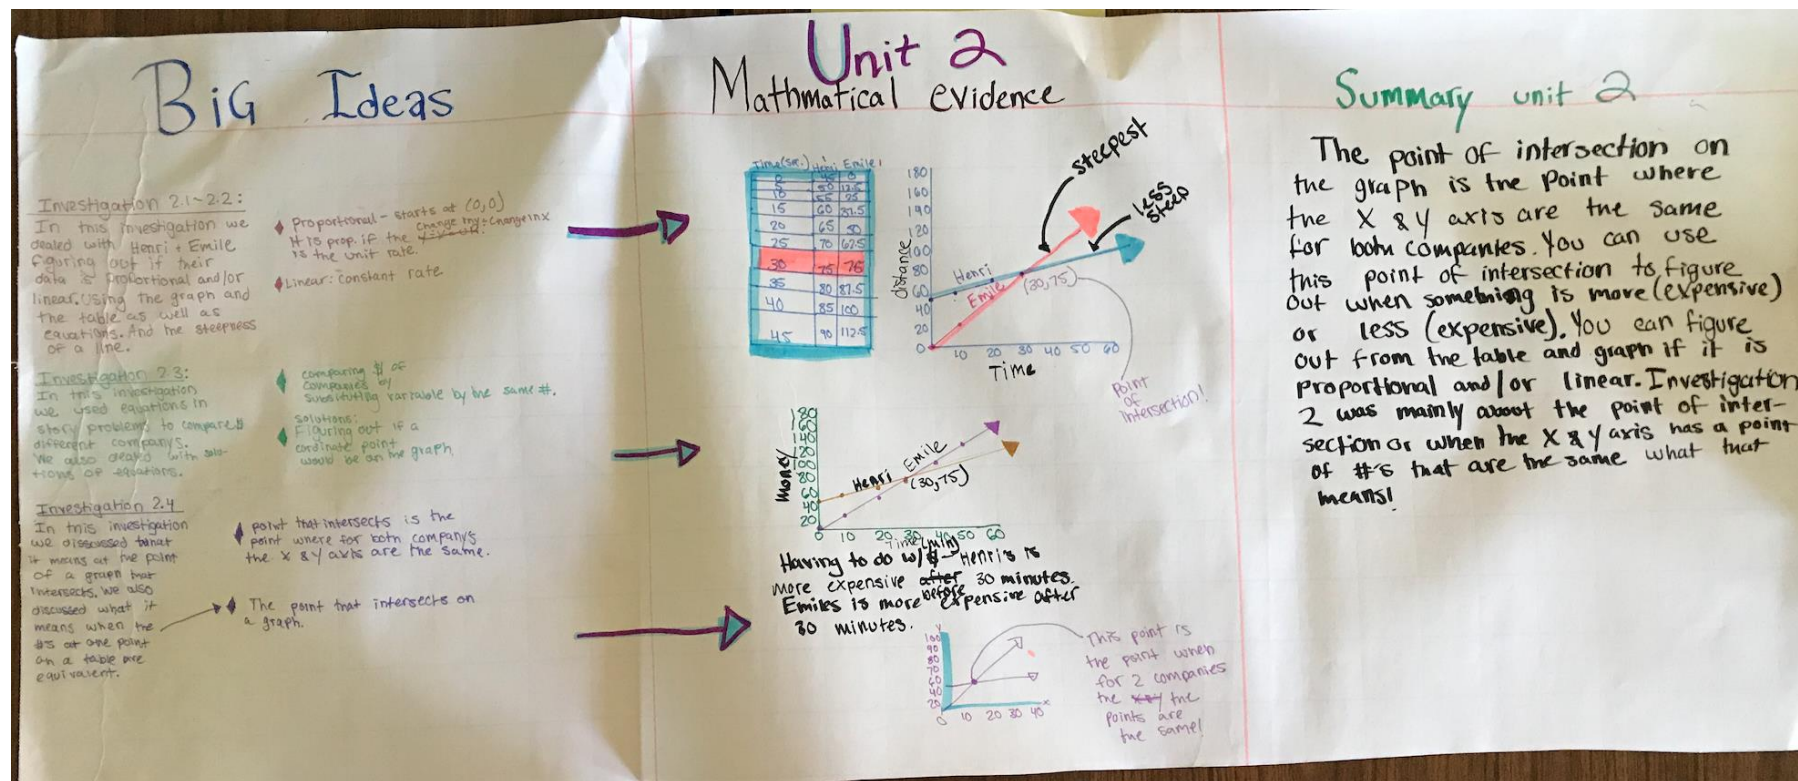 Big Ideas
Investigation 2.1-2.2:
In this investigation we
dealed with Henri + Emile
figuring out if their
data is proportional and/or
linear. Using the graph and
the table as well as
equations. And the steepness
of a line.
Proportional - starts at (0,0)
It is prop. if the change in y ÷ change in x
is the unit rate.
Linear: constant rate
Investigation 2.3:
In this investigation
we used equations in
story problems to compare $
different companys.
We also dealed with solu-
tions of equations.
comparing $ of
companies by
substituting variable by the same #.
solutions:
Figuring out if a
cordinate point
would be on the graph.
Investigation 2.4
In this investigation
we disscussed what
it means at the point
of a graph that
intersects. We also
discussed what it
means when the
#s at one point
on a table are
equivalent.
point that intersects is the
point where for both companys
the X & Y axis are the same.
The point that intersects on
a graph.
Unit 2
Mathmatical evidence
Time(sec.) Henri Emile
0 45 0
5 50 12.5
10 55 25
15 60 37.5
20 65 50
25 70 62.5
30 75 75
35 80 87.5
40 85 100
45 90 112.5
steepest
less
steep
distance
180
160
140
120
100
80
60
40
20
0 10 20 30 40 50 60
Time
Henri
Emile
(30,75)
Point
of
intersection!
Money
180
160
140
120
100
80
60
40
20
0 10 20 30 40 50 60
Time (min)
Henri
Emile
(30,75)
Having to do w/$ - Henri's is
more expensive after before 30 minutes.
Emiles is more expensive after
30 minutes.
Y
100
90
80
70
60
40
20
0 10 20 30 40
X
This point is
the point when
for 2 companies
the x&y the
points are
the same!
Summary unit 2
The point of intersection on
the graph is the Point where
the X & Y axis are the same
for both companies. You can use
this point of intersection to figure
out when something is more (expensive)
or less (expensive). You can figure
out from the table and graph if it is
proportional and/or linear. Investigation
2 was mainly about the point of inter-
section or when the X & Y axis has a point
of #'s that are the same what that
means!